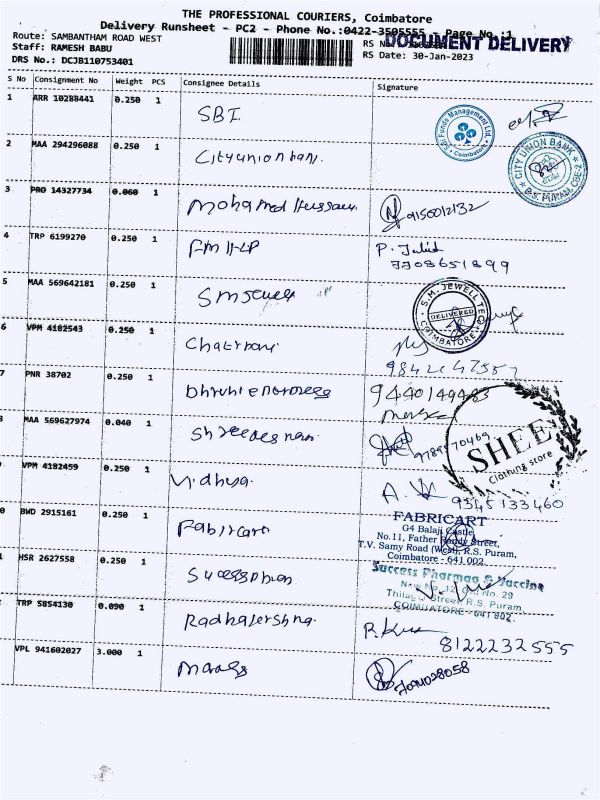 THE PROFESSIONAL COURIERS, Coimbatore
Delivery Runsheet - PC2 - Phone No.:0422-3505555 - Page No.:1
Route: SAMBANTHAM ROAD WEST
RS No
DOCUMENT DELIVERY
Staff: RAMESH BABU
RS Date: 30-Jan-2023
DRS No.: DCJB110753401
S No Consignment No Weight PCS Consignee Details Signature
1 ARR 10288441 0.250 1 SBI
SBI Funds Management Ltd. Coimbatore
2 MAA 294296088 0.250 1 Cityunion bank
CITY UNION BANK R.S. PURAM, CBE-2
3 PRO 14327734 0.060 1 Mohamed Hussain 9150012132
4 TRP 6199270 0.250 1 P.
7708651899
5 MAA 569642181 0.250 1 SM Jewell
S.M. JEWELL TEC DELIVERED COIMBATORE
6 VPM 4182543 0.250 1
7 PNR 38702 0.250 1 9440149483
8 MAA 569627974 0.040 1
SHEE
Clothing store
9 VPM 4182459 0.250 1 Vidhya A.
9345133460
0 BWD 2915161 0.250 1 Fabricart
FABRICART
G4 Balaji Castle
No.11, Father Randy Street,
T.V. Samy Road (West), R.S. Puram,
Coimbatore - 641 002.
1 HSR 2627558 0.250 1
Success Pharmaa & Vaccine
New No. 12, Old No. 29
Thilagar Street, R.S. Puram
COIMBATORE - 641 002.
2 TRP 5854130 0.090 1 Radhakrishna
8122232555
VPL 941602027 3.000 1